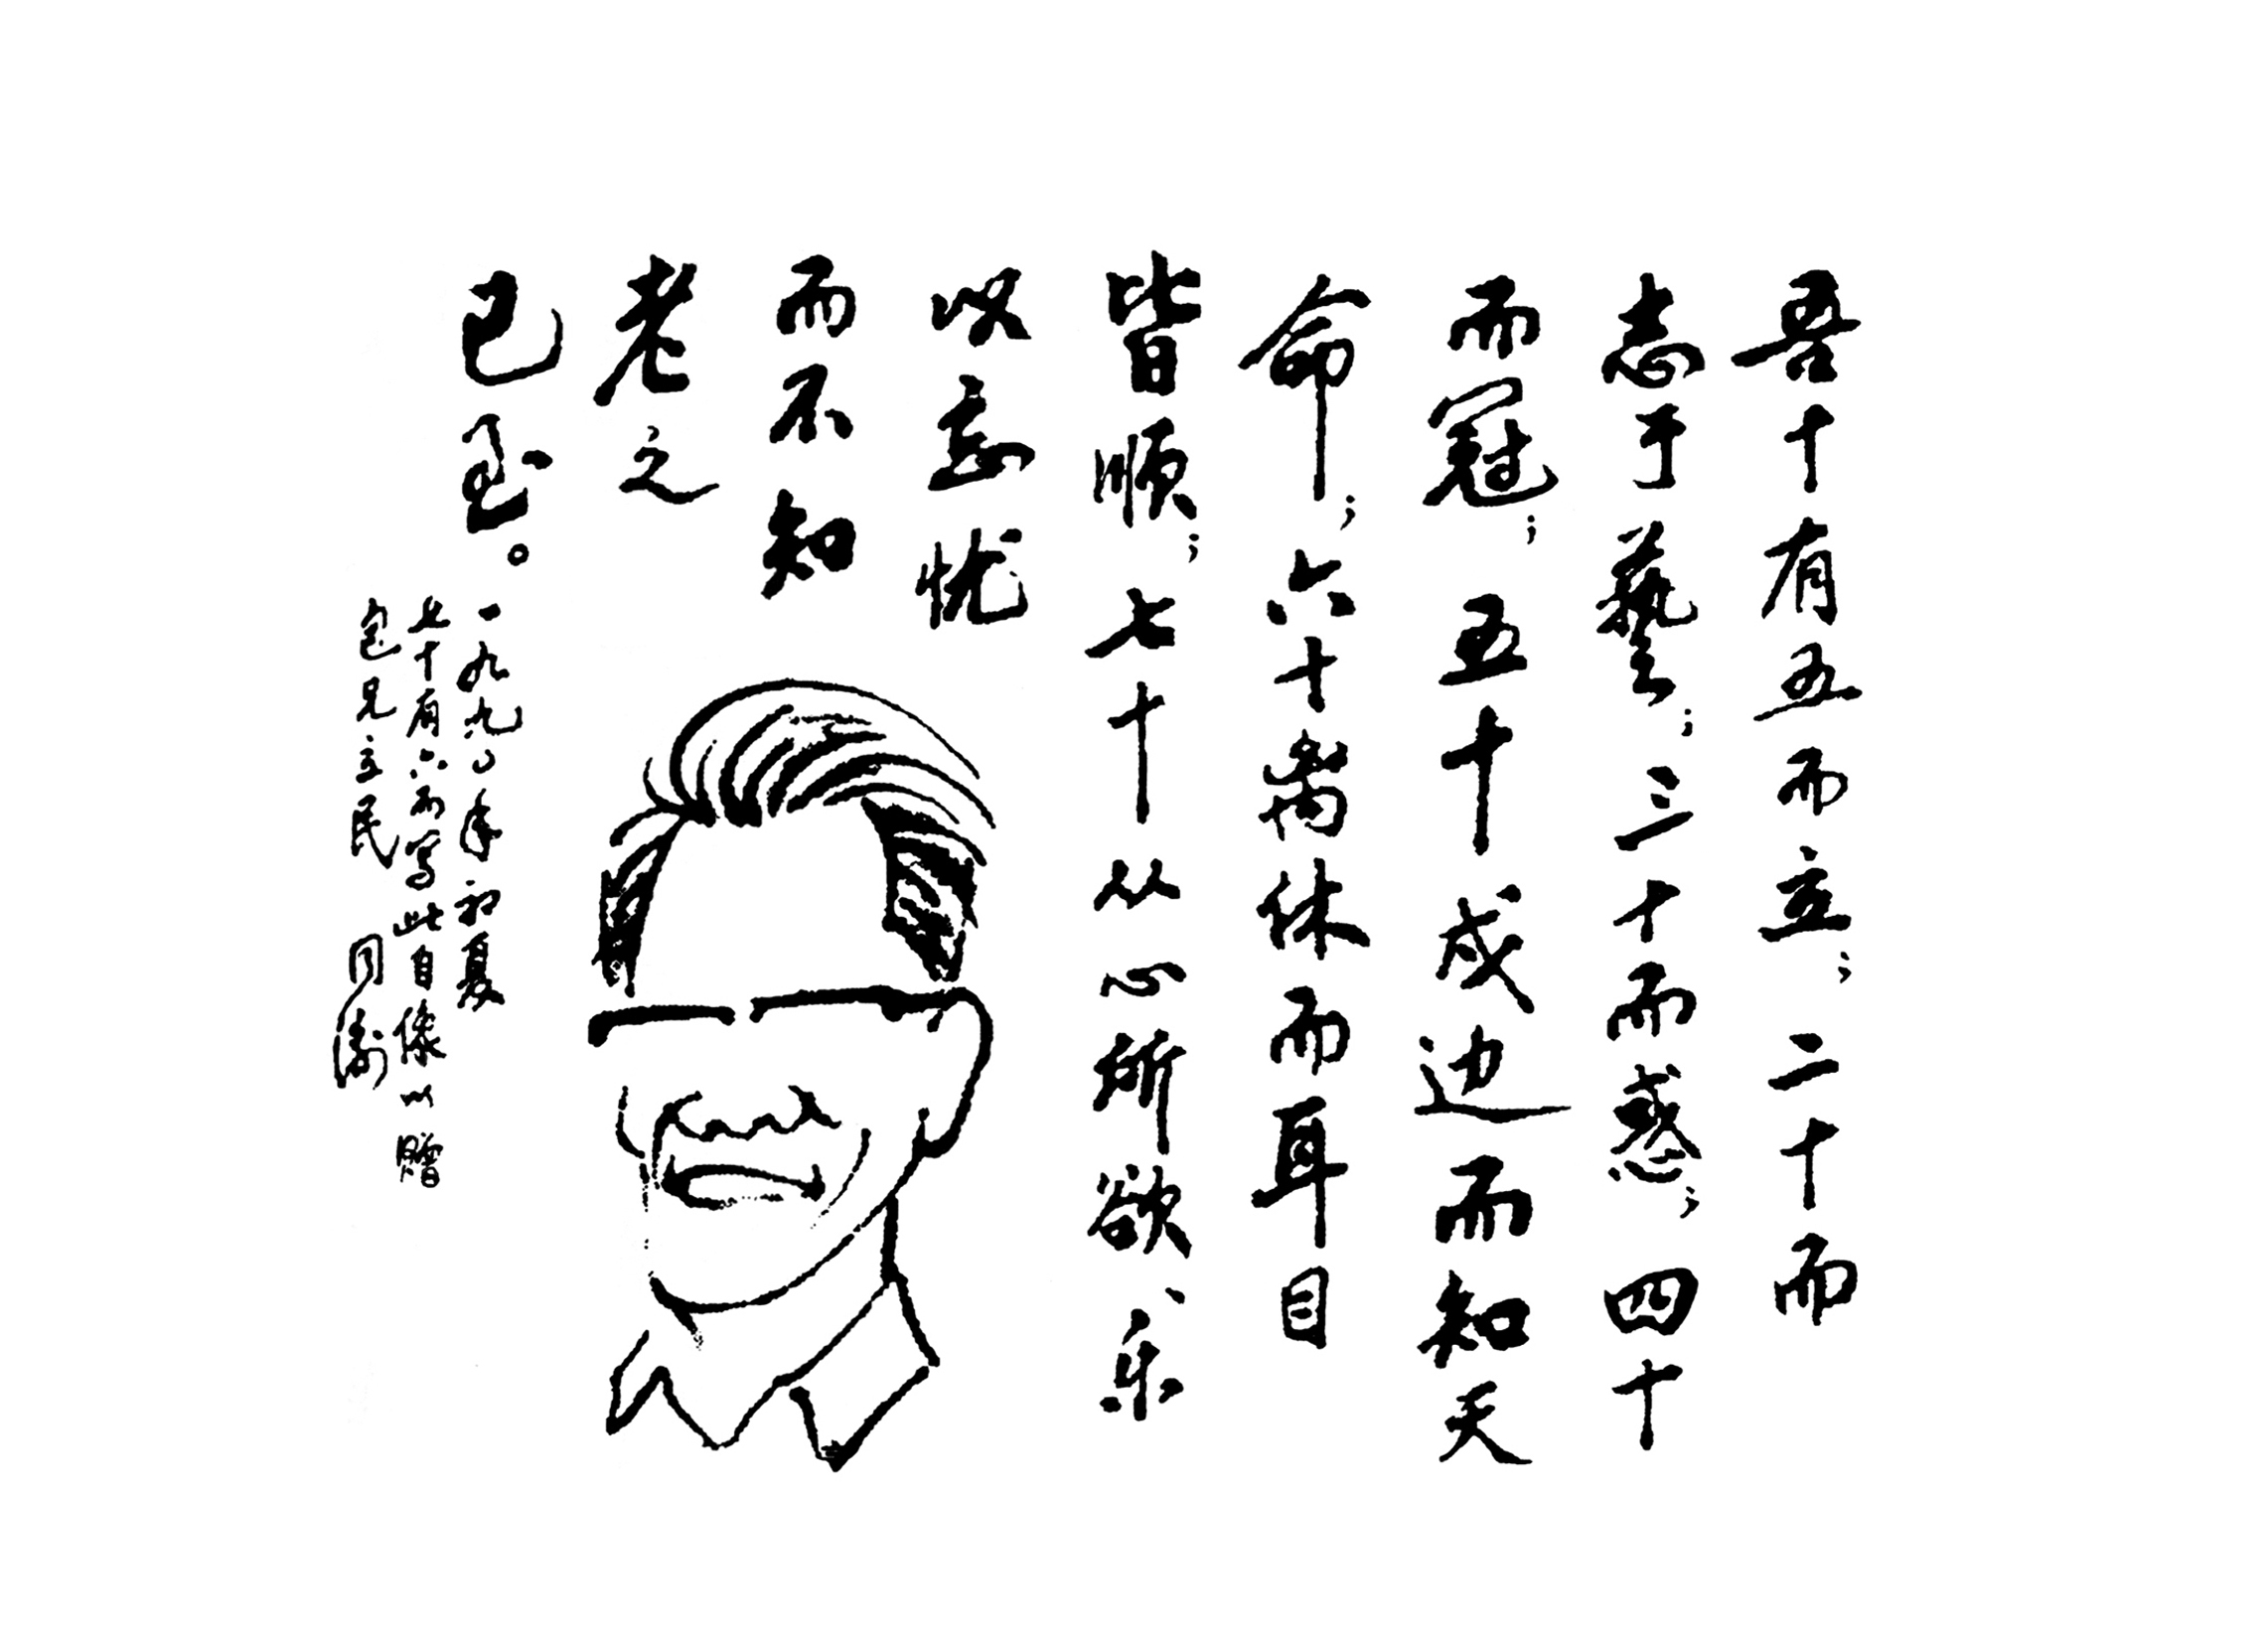 吾十有五而立；二十而
志于藝；三十而惑；四十
而冠；五十戍边而知天
命；六十离休而耳目
皆顺；七十从心所欲、乐
以忘忧
而不知
老之
已至。
一九九〇年初夏
七十有六而写此自像以赠
包兄立民